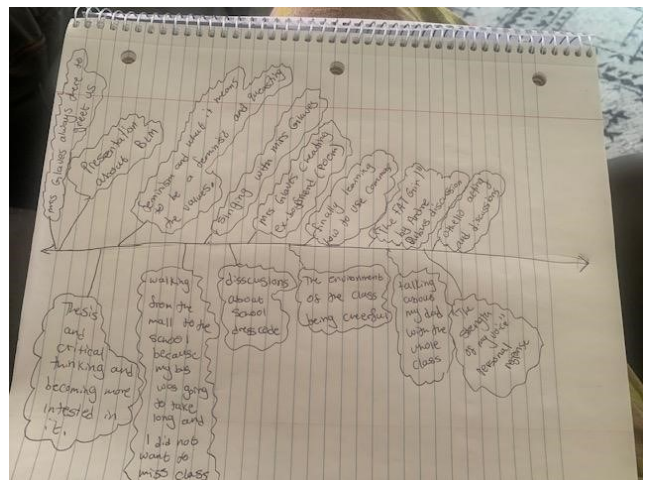 Mrs Glaves always there to
greet us
Presentation
about BLM
feminism and what it means
to be a feminist and
the values.
Singing with Mrs Glaves
Mrs Glaves creating
(POEM)
finally learning
how to use commas
"The FAT Girl"
by Andre
Dubus discussion
othello acting
and discussions
Thesis
and
critical
thinking and
becoming more
intested in
it.
walking
from the
mall to the
school
because
my bus
was going
to take
long and
I did not
want to
miss class
disscusions
about
school
dresscode
The environment
of the class
being cheerful
talking
about
my dad
with the
whole
class
"The
strength
of my voice"
personal